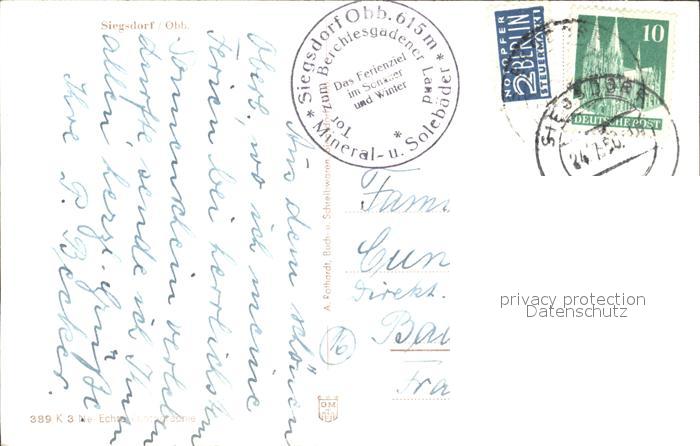 Siegsdorf / Obb.
* Siegsdorf Obb. 615 m *
Tor zum Berchtesgadener Land
Das Ferienziel
im Sommer
und Winter
Mineral- u. Solebäder
NOTOPFER
2 BERLIN
STEUERMARKE
10
DEUTSCHE POST
SIEGSDORF
24.7.50
Aus dem schönen
Obb., wo ich meine
Ferien bei herrlichstem
Sonnenschein verleben
durfte sende ich Ihnen
allen herzl. Grüße
Ihre P. Becker.
A. Rothardt, Buch- u. Schreibwaren
Fam
Cun
Direkt.
Bau
Fra
16
389 K 3 Ne Echte
privacy protection
Datenschutz